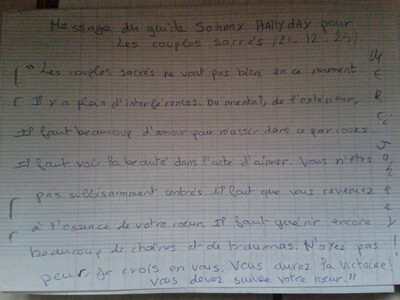 Message du guide Johnny HALLYDAY pour
Les couples sacrés (21-12-25)
" Les couples sacrés ne vont pas bien en ce moment
Il y a plein d'interférences. Du mental, de l'extérieur,
Il faut beaucoup d'amour pour réussir dans ce parcours.
Il faut voir la beauté dans l'acte d'aimer. Vous n'êtes
pas suffisamment centrés. Il faut que vous reveniez
à l'essence de votre cœur. Il faut guérir encore
beaucoup de chaînes et de traumas. N'ayez pas
peur, Je crois en vous. Vous aurez la Victoire!
Vous devez suivre votre cœur!!